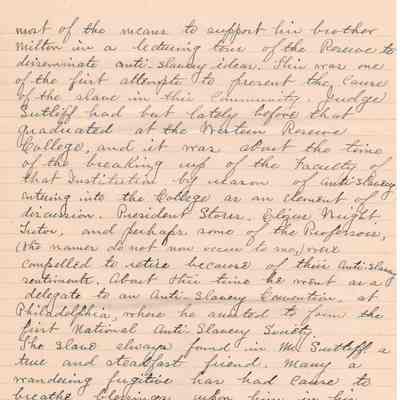 most of the means to support his brother
Milton in a lecturing tour of the Reserve to
disseminate anti-slavery ideas. This was one
of the first attempts to present the cause
of the slave in this community. Judge
Sutliff had but lately before that
graduated at the Western Reserve
College, and it was about the time
of the breaking up of the Faculty of
that Institution by reason of anti-slavery
entering into the College as an element of
discussion. President Storrs, Elizur Wright
Tutor, and perhaps some of the Professors,
(the names do not now occur to me,) were
compelled to retire because of their Anti-slavery
sentiments. About this time he went as a
delegate to an Anti-Slavery Convention, at
Philadelphia, where he assisted to form the
first National Anti-Slavery Society.
The slave always found in Mr Sutliff a
true and steadfast friend. Many a
wandering fugitive has had cause to
breathe blessings upon him in his